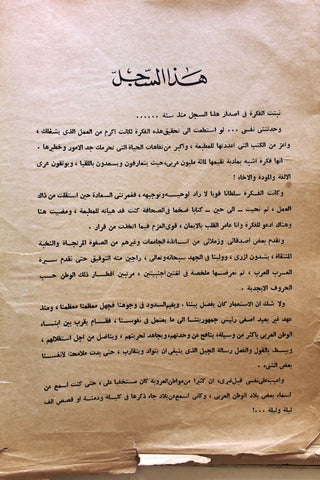 هذا السجل
نبتت الفكرة في اصدار هذا السجل منذ سنة ......
وحدثتني نفسي ... لو استطعت الى تحقيق هذه الفكرة لكانت اكرم من العمل الذي يشغلك ،
واعز من الكتب التى اعددتها للمطبعة ، واكبر من تفاهات الحياة التى تحرمك جد الامور وخطيرها .
انها فكرة اشبه بمأدبة تقيمها لمائة مليون عربى ، حيث يتعارفون ويسعدون باللقيا ، ويوثقون عرى
الالفة والمودة والاخاء !
وكانت الفكرة سلطانا قويا لا راد لوحيه وتوجيهه ، فغمرتنى السعادة حين استقلت من ذاك
العمل ، ثم نحيت ــ الى حين ــ كتابا ضخما فى الصحافة كنت قد هيأته للمطبعة ، ومضيت هنا
وهناك ادعو للفكرة وانا عامر القلب بالايمان ، قوى العزم فيما اتخذت من قرار .
وتقدم بعض اصدقائى وزملائى من اساتذة الجامعات وغيرهم من الصفوة المرتجاة والنخبة
المنتقاة ، يشدون ازرى ، وولينا فى الجهد سبحانه وتعالى ، راجين منه التوفيق حتى تقدم سيرة
العرب للعرب ، ثم نعرضها ملخصة فى لغتين اجنبيتين ، مرتبين اقطار ذلك الوطن حسب
الحروف الابجدية .
ولا شك ان الاستعمار كان يفصل بيننا ، ويقيم السدود فى وجوهنا فنجهل معظمنا معظمنا ، ومنذ
عهد غير بعيد اصغى رئيس جمهوريتنا الى ما يعتمل فى نفوسنا ، فقام يقرب بين ابناء
الوطن العربى باكثر من وسيلة ، يدافع عن وحدتهم ، ويجاهد لحريتهم ، ويناضل من اجل استقلالهم ،
ويبسط بالقول والفعل رسالة الجيل الذى ينبغى ان يتواد ويتقارب ، حتى بدت ملامحنا لانفسنا
بعض الشىء .
واعيب على نفسى قبل غيرى ، ان كثيرا من مواطن العروبة كان مستخفيا على ، حتى كنت اسمع عن
اسماء بعض بلاد الوطن العربى ، وكأنى اسمع عن بلاد جاء ذكرها فى كليلة ودمنة او قصص الف
ليلة وليلة ...!